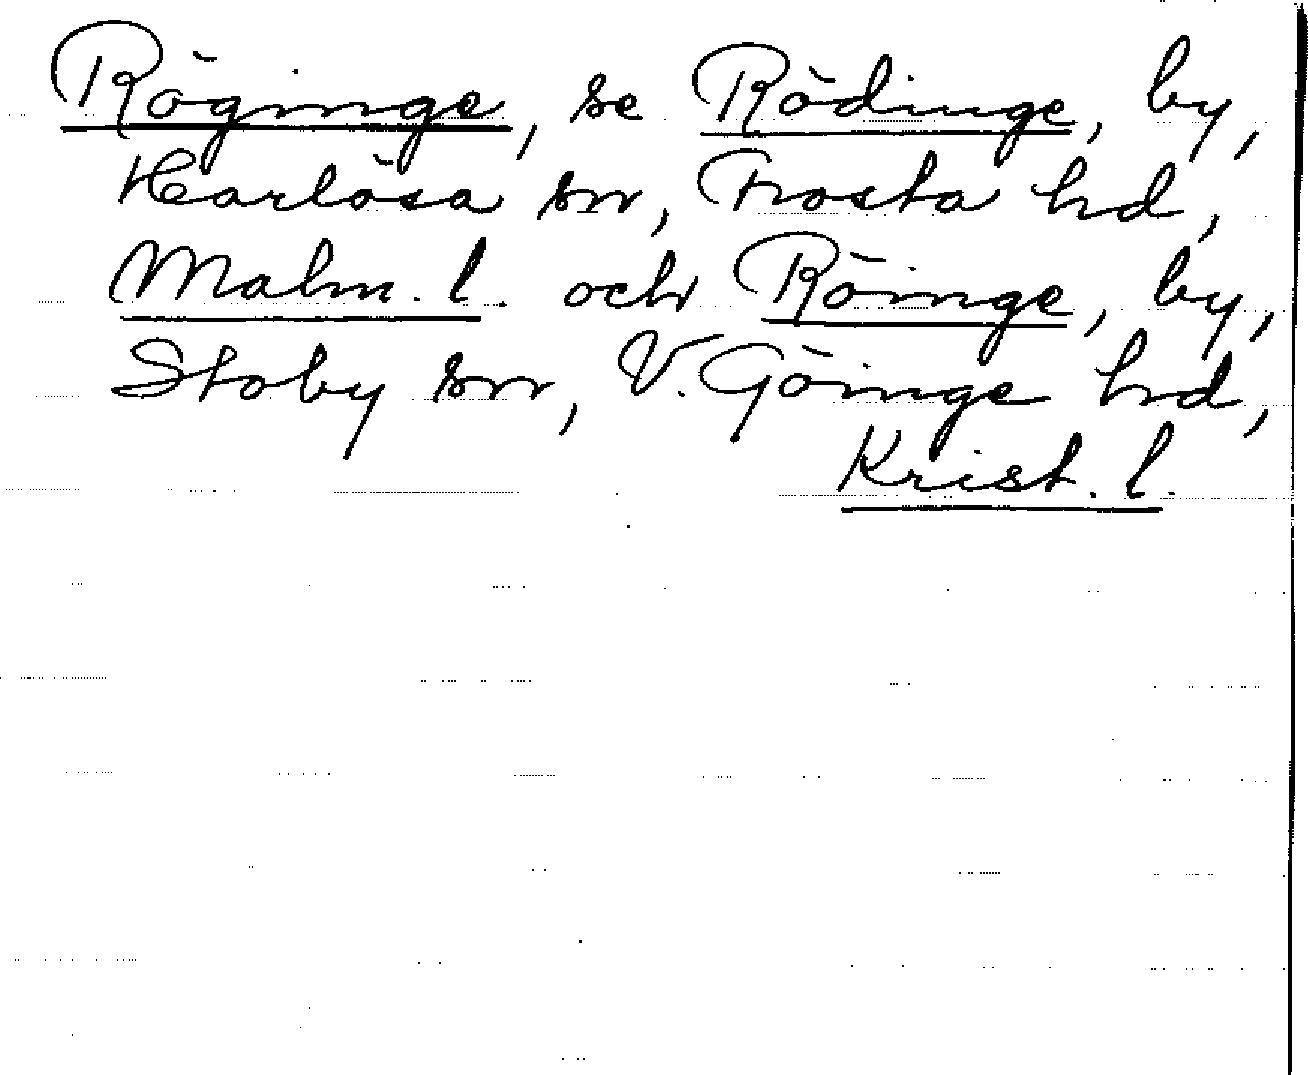 Röginge, se Rödinge, by,
Harlösa sn, Frosta hd,
Malm. l. och Röinge, by,
Stoby sn, V. Göinge hd,
Krist. l.